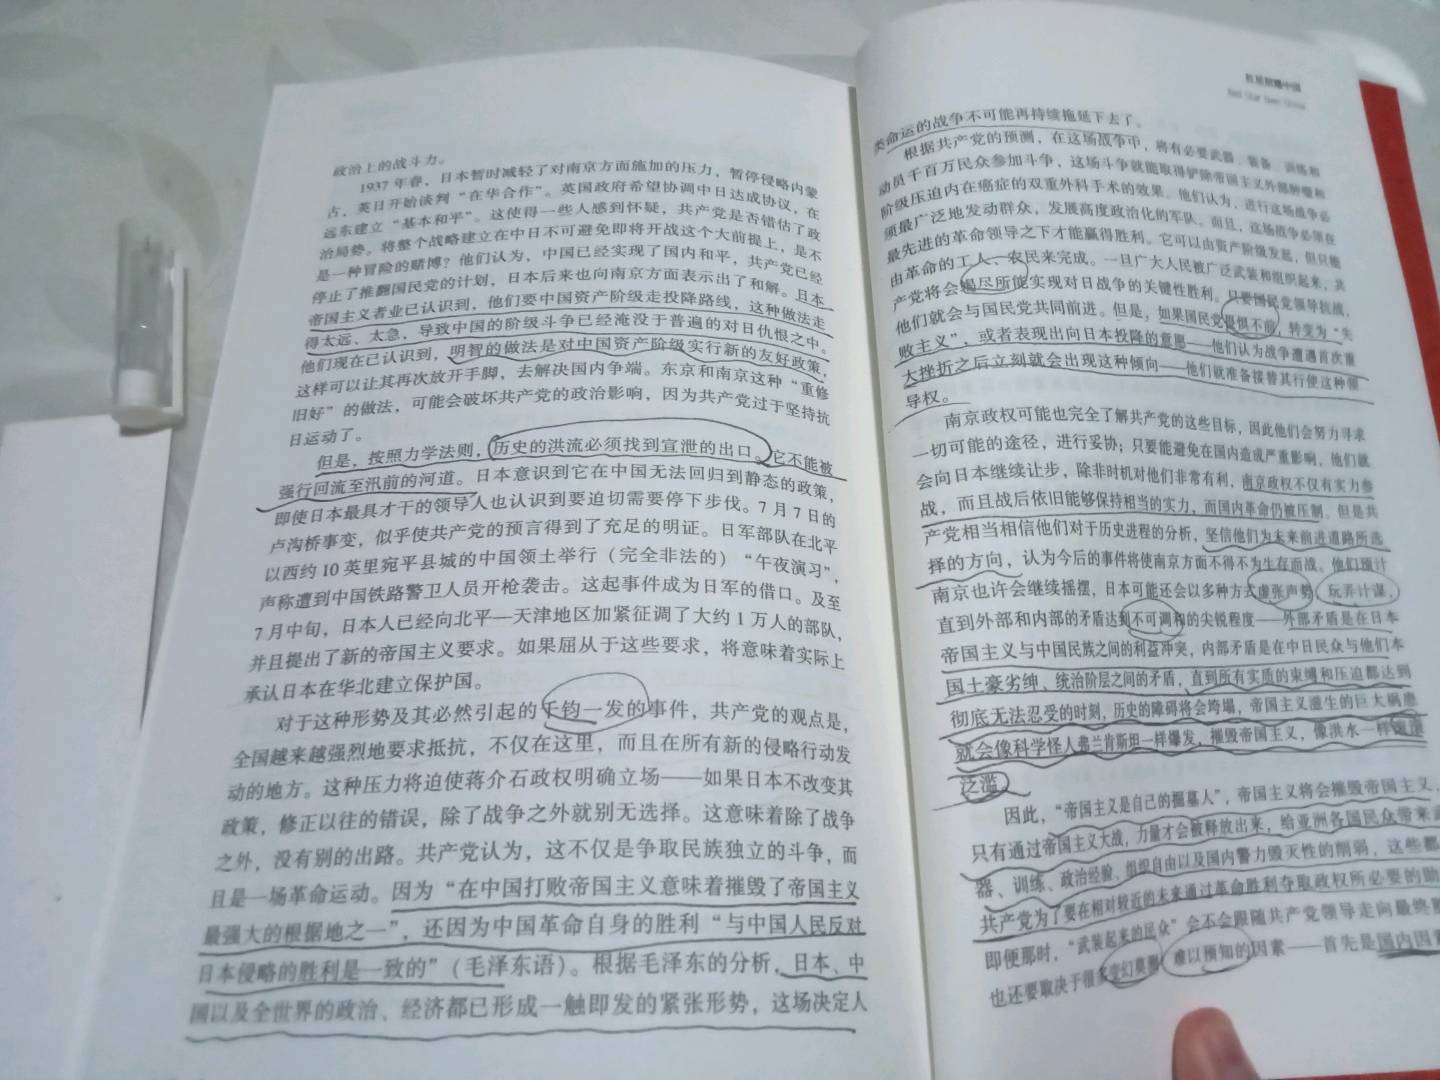 政治上的战斗力。
1937年春，日本暂时减轻了对南京方面施加的压力，暂停侵略内蒙
古，英日开始谈判“在华合作”。英国政府希望协调中日达成协议，在
远东建立“基本和平”。这使得一些人感到怀疑，共产党是否错估了政
治局势。将整个战略建立在中日不可避免即将开战这个大前提上，是不
是一种冒险的赌博？他们认为，中国已经实现了国内和平，共产党已经
停止了推翻国民党的计划，日本后来也向南京方面表示出了和解。日本
帝国主义者业已认识到，他们要中国资产阶级走投降路线，这种做法走
得太远、太急，导致中国的阶级斗争已经淹没于普遍的对日仇恨之中。
他们现在已认识到，明智的做法是对中国资产阶级实行新的友好政策，
这样可以让其再次放开手脚，去解决国内争端。东京和南京这种“重修
旧好”的做法，可能会破坏共产党的政治影响，因为共产党过于坚持抗
日运动了。
但是，按照力学法则，历史的洪流必须找到宣泄的出口。它不能被
强行回流至汛前的河道。日本意识到它在中国无法回归到静态的政策，
即使日本最具才干的领导人也认识到要迫切需要停下步伐。7月7日的
卢沟桥事变，似乎使共产党的预言得到了充足的明证。日军部队在北平
以西约10英里宛平县城的中国领土举行（完全非法的）“午夜演习”，
声称遭到中国铁路警卫人员开枪袭击。这起事件成为日军的借口。及至
7月中旬，日本人已经向北平—天津地区加紧征调了大约1万人的部队，
并且提出了新的帝国主义要求。如果屈从于这些要求，将意味着实际上
承认日本在华北建立保护国。
对于这种形势及其必然引起的千钧一发的事件，共产党的观点是，
全国越来越强烈地要求抵抗，不仅在这里，而且在所有新的侵略行动发
动的地方。这种压力将迫使蒋介石政权明确立场——如果日本不改变其
政策，修正以往的错误，除了战争之外就别无选择。这意味着除了战争
之外，没有别的出路。共产党认为，这不仅是争取民族独立的斗争，而
且是一场革命运动。因为“在中国打败帝国主义意味着摧毁了帝国主义
最强大的根据地之一”，还因为中国革命自身的胜利“与中国人民反对
日本侵略的胜利是一致的”（毛泽东语）。根据毛泽东的分析，日本、中
国以及全世界的政治、经济都已形成一触即发的紧张形势，这场决定人
红星照耀中国
Red Star Over China
类命运的战争不可能再持续拖延下去了。
根据共产党的预测，在这场战争中，将有必要武器、装备、训练和
动员千百万民众参加斗争，这场斗争就能取得铲除帝国主义外部肿瘤和
阶级压迫内在癌症的双重外科手术的效果。他们认为，进行这场战争必
须最广泛地发动群众，发展高度政治化的军队。而且，这场战争必须在
最先进的革命领导之下才能赢得胜利。它可以由资产阶级发起，但只能
由革命的工人、农民来完成。一旦广大人民被广泛武装和组织起来，共
产党将会竭尽所能实现对日战争的关键性胜利。只要国民党领导抗战，
他们就会与国民党共同前进。但是，如果国民党畏惧不前，转变为“失
败主义”，或者表现出向日本投降的意愿——他们认为战争遭遇首次重
大挫折之后立刻就会出现这种倾向——他们就准备接替其行使这种领
导权。
南京政权可能也完全了解共产党的这些目标，因此他们会努力寻求
一切可能的途径，进行妥协；只要能避免在国内造成严重影响，他们就
会向日本继续让步，除非时机对他们非常有利，南京政权不仅有实力参
战，而且战后依旧能够保持相当的实力，而国内革命仍被压制。但是共
产党相当相信他们对于历史进程的分析，坚信他们为未来前进道路所选
择的方向，认为今后的事件将使南京方面不得不为生存而战。他们预计
南京也许会继续摇摆，日本可能还会以多种方式虚张声势、玩弄计谋，
直到外部和内部的矛盾达到不可调和的尖锐程度——外部矛盾是在日本
帝国主义与中国民族之间的利益冲突，内部矛盾是在中日民众与他们本
国土豪劣绅、统治阶层之间的矛盾，直到所有实质的束缚和压迫都达到
彻底无法忍受的时刻，历史的障碍将会垮塌，帝国主义滋生的巨大祸患
就会像科学怪人弗兰肯斯坦一样爆发，摧毁帝国主义，像洪水一样
泛滥。
因此，“帝国主义是自己的掘墓人”，帝国主义将会摧毁帝国主义，
只有通过帝国主义大战，力量才会被释放出来，给亚洲各国民众带来武
器、训练、政治经验、组织自由以及国内警力毁灭性的削弱，这些都
共产党为了要在相对较近的未来通过革命胜利夺取政权所必要的助
即便那时，“武装起来的民众”会不会跟随共产党领导走向最终
也还要取决于很多变幻莫测、难以预知的因素——首先是国内因